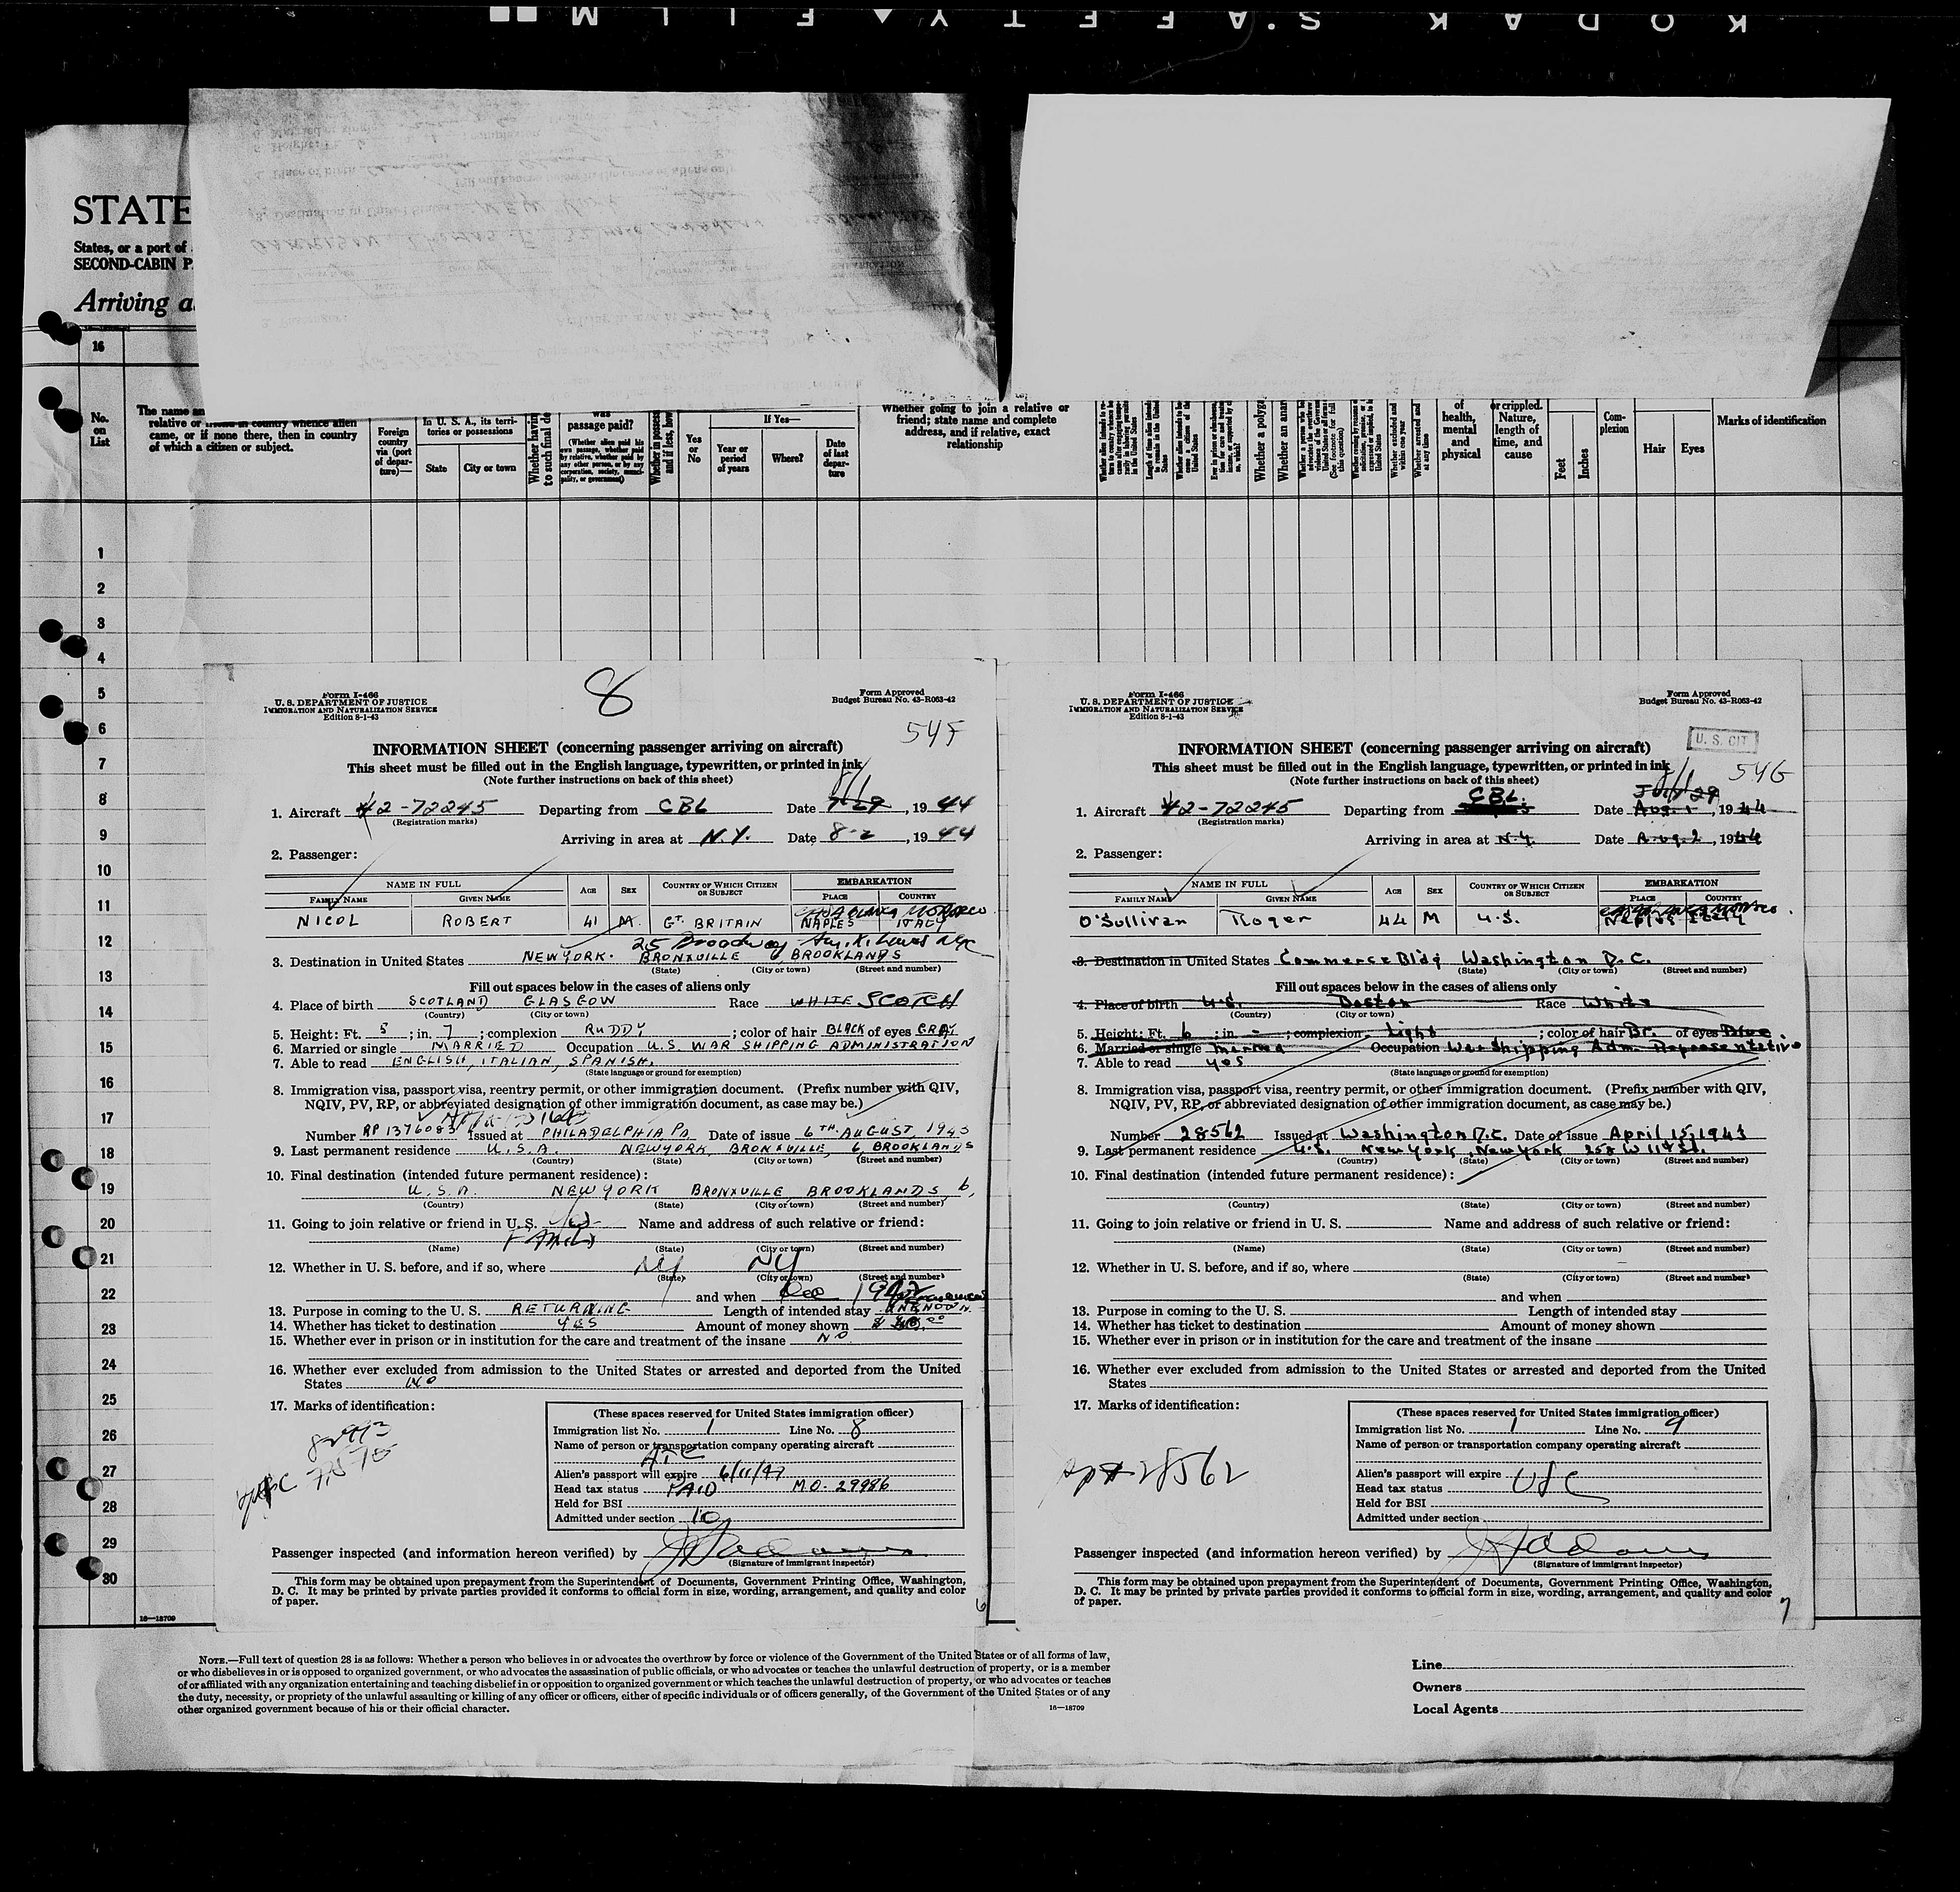 KODAK S'AFETY ▲ FILM
STATE
States, or a port of
SECOND-CABIN P
Arriving a
16
No. on List
The name an
relative or friend in country whence alien
came, or if none there, then in country
of which a citizen or subject.
Foreign country via (port of departure)—
In U. S. A., its territories or possessions
State
City or town
Whether having
to such final de
was passage paid?
(Whether alien paid his own passage, whether paid by relative, whether paid by any other person, or by any corporation, society, municipality, or government)
Whether in possess
and if less, how
Yes or No
If Yes—
Year or period of years
Where?
Date of last departure
Whether going to join a relative or
friend; state name and complete
address, and if relative, exact
relationship
Whether a polyga
Whether an anar
of health, mental and physical
or crippled. Nature, length of time, and cause
Feet
Inches
Complexion
Hair
Eyes
Marks of identification
1
2
3
4
5
6
7
8
9
10
11
12
13
14
15
16
17
18
19
20
21
22
23
24
25
26
27
28
29
30
16—18709
8
Form I-466
U. S. DEPARTMENT OF JUSTICE
IMMIGRATION AND NATURALIZATION SERVICE
Edition 8-1-43
Form Approved
Budget Bureau No. 43-R063-42
545
INFORMATION SHEET (concerning passenger arriving on aircraft)
This sheet must be filled out in the English language, typewritten, or printed in ink
(Note further instructions on back of this sheet)
8/1
1. Aircraft 42-72245 Departing from CBL Date 7-29, 1944
(Registration marks)
Arriving in area at N.Y. Date 8-2, 1944
2. Passenger:
NAME IN FULL AGE SEX COUNTRY OF WHICH CITIZEN OR SUBJECT EMBARKATION
FAMILY NAME GIVEN NAME PLACE COUNTRY
CASABLANCA MOROCCO
NICOL ROBERT 41 M. GT. BRITAIN NAPLES ITALY
25 Broadway
3. Destination in United States NEW YORK. BRONXVILLE 6 BROOKLANDS
(State) (City or town) (Street and number)
Fill out spaces below in the cases of aliens only
4. Place of birth SCOTLAND GLASGOW Race WHITE SCOTCH
(Country) (City or town)
5. Height: Ft. 5; in. 7; complexion RUDDY; color of hair BLACK of eyes GRAY
6. Married or single MARRIED Occupation U.S. WAR SHIPPING ADMINISTRATION
7. Able to read ENGLISH, ITALIAN, SPANISH.
(State language or ground for exemption)
8. Immigration visa, passport visa, reentry permit, or other immigration document. (Prefix number with QIV,
NQIV, PV, RP, or abbreviated designation of other immigration document, as case may be.)
Number RP 1376083 Issued at PHILADELPHIA PA Date of issue 6TH. AUGUST, 1943
9. Last permanent residence U.S.A. NEW YORK, BRONXVILLE, 6, BROOKLANDS
(Country) (State) (City or town) (Street and number)
10. Final destination (intended future permanent residence):
U.S.A. NEW YORK BRONXVILLE, BROOKLANDS, 6,
(Country) (State) (City or town) (Street and number)
11. Going to join relative or friend in U. S. Yes Name and address of such relative or friend:
Family
(Name) (State) (City or town) (Street and number)
12. Whether in U. S. before, and if so, where NY NY
(State) (City or town) (Street and number)
and when Dec
13. Purpose in coming to the U. S. RETURNING Length of intended stay UNKNOWN.
14. Whether has ticket to destination YES Amount of money shown
15. Whether ever in prison or in institution for the care and treatment of the insane NO
16. Whether ever excluded from admission to the United States or arrested and deported from the United
States NO
17. Marks of identification:
(These spaces reserved for United States immigration officer)
Immigration list No. 1 Line No. 8
Name of person or transportation company operating aircraft
ATC
Alien's passport will expire 6/11/47
Head tax status PAID M.O. 29986
Held for BSI
Admitted under section 10
Passenger inspected (and information hereon verified) by
(Signature of immigrant inspector)
This form may be obtained upon prepayment from the Superintendent of Documents, Government Printing Office, Washington,
D. C. It may be printed by private parties provided it conforms to official form in size, wording, arrangement, and quality and color
of paper.
6
Form I-466
U. S. DEPARTMENT OF JUSTICE
IMMIGRATION AND NATURALIZATION SERVICE
Edition 8-1-43
Form Approved
Budget Bureau No. 43-R063-42
U. S. CIT.
546
INFORMATION SHEET (concerning passenger arriving on aircraft)
This sheet must be filled out in the English language, typewritten, or printed in ink
(Note further instructions on back of this sheet)
8/1
CBL. July 29
1. Aircraft 42-72245 Departing from Date Aug. 1, 1944
(Registration marks)
Arriving in area at N.Y. Date Aug. 2, 1944
2. Passenger:
NAME IN FULL AGE SEX COUNTRY OF WHICH CITIZEN OR SUBJECT EMBARKATION
FAMILY NAME GIVEN NAME PLACE COUNTRY
O'Sullivan Roger 44 M U.S. Naples Italy
3. Destination in United States Commerce Bldg Washington D.C.
(State) (City or town) (Street and number)
Fill out spaces below in the cases of aliens only
4. Place of birth U.S. Boston Race White
(Country) (City or town)
5. Height: Ft. 6; in. -; complexion Light; color of hair Br. of eyes Blue
6. Married or single Married Occupation War Shipping Adm. Representative
7. Able to read yes
(State language or ground for exemption)
8. Immigration visa, passport visa, reentry permit, or other immigration document. (Prefix number with QIV,
NQIV, PV, RP, or abbreviated designation of other immigration document, as case may be.)
Number 28562 Issued at Washington D.C. Date of issue April 15, 1943
9. Last permanent residence U.S. New York, New York 258 W 11th St.
(Country) (State) (City or town) (Street and number)
10. Final destination (intended future permanent residence):
(Country) (State) (City or town) (Street and number)
11. Going to join relative or friend in U. S. Name and address of such relative or friend:
(Name) (State) (City or town) (Street and number)
12. Whether in U. S. before, and if so, where
(State) (City or town) (Street and number)
and when
13. Purpose in coming to the U. S. Length of intended stay
14. Whether has ticket to destination Amount of money shown
15. Whether ever in prison or in institution for the care and treatment of the insane
16. Whether ever excluded from admission to the United States or arrested and deported from the United
States
17. Marks of identification:
28562
(These spaces reserved for United States immigration officer)
Immigration list No. 1 Line No. 9
Name of person or transportation company operating aircraft
Alien's passport will expire USC
Head tax status
Held for BSI
Admitted under section
Passenger inspected (and information hereon verified) by
(Signature of immigrant inspector)
This form may be obtained upon prepayment from the Superintendent of Documents, Government Printing Office, Washington,
D. C. It may be printed by private parties provided it conforms to official form in size, wording, arrangement, and quality and color
of paper.
7
NOTE.—Full text of question 28 is as follows: Whether a person who believes in or advocates the overthrow by force or violence of the Government of the United States or of all forms of law,
or who disbelieves in or is opposed to organized government, or who advocates the assassination of public officials, or who advocates or teaches the unlawful destruction of property, or is a member
of or affiliated with any organization entertaining and teaching disbelief in or opposition to organized government or which teaches the unlawful destruction of property, or who advocates or teaches
the duty, necessity, or propriety of the unlawful assaulting or killing of any officer or officers, either of specific individuals or of officers generally, of the Government of the United States or of any
other organized government because of his or their official character.
16—18709
Line
Owners
Local Agents